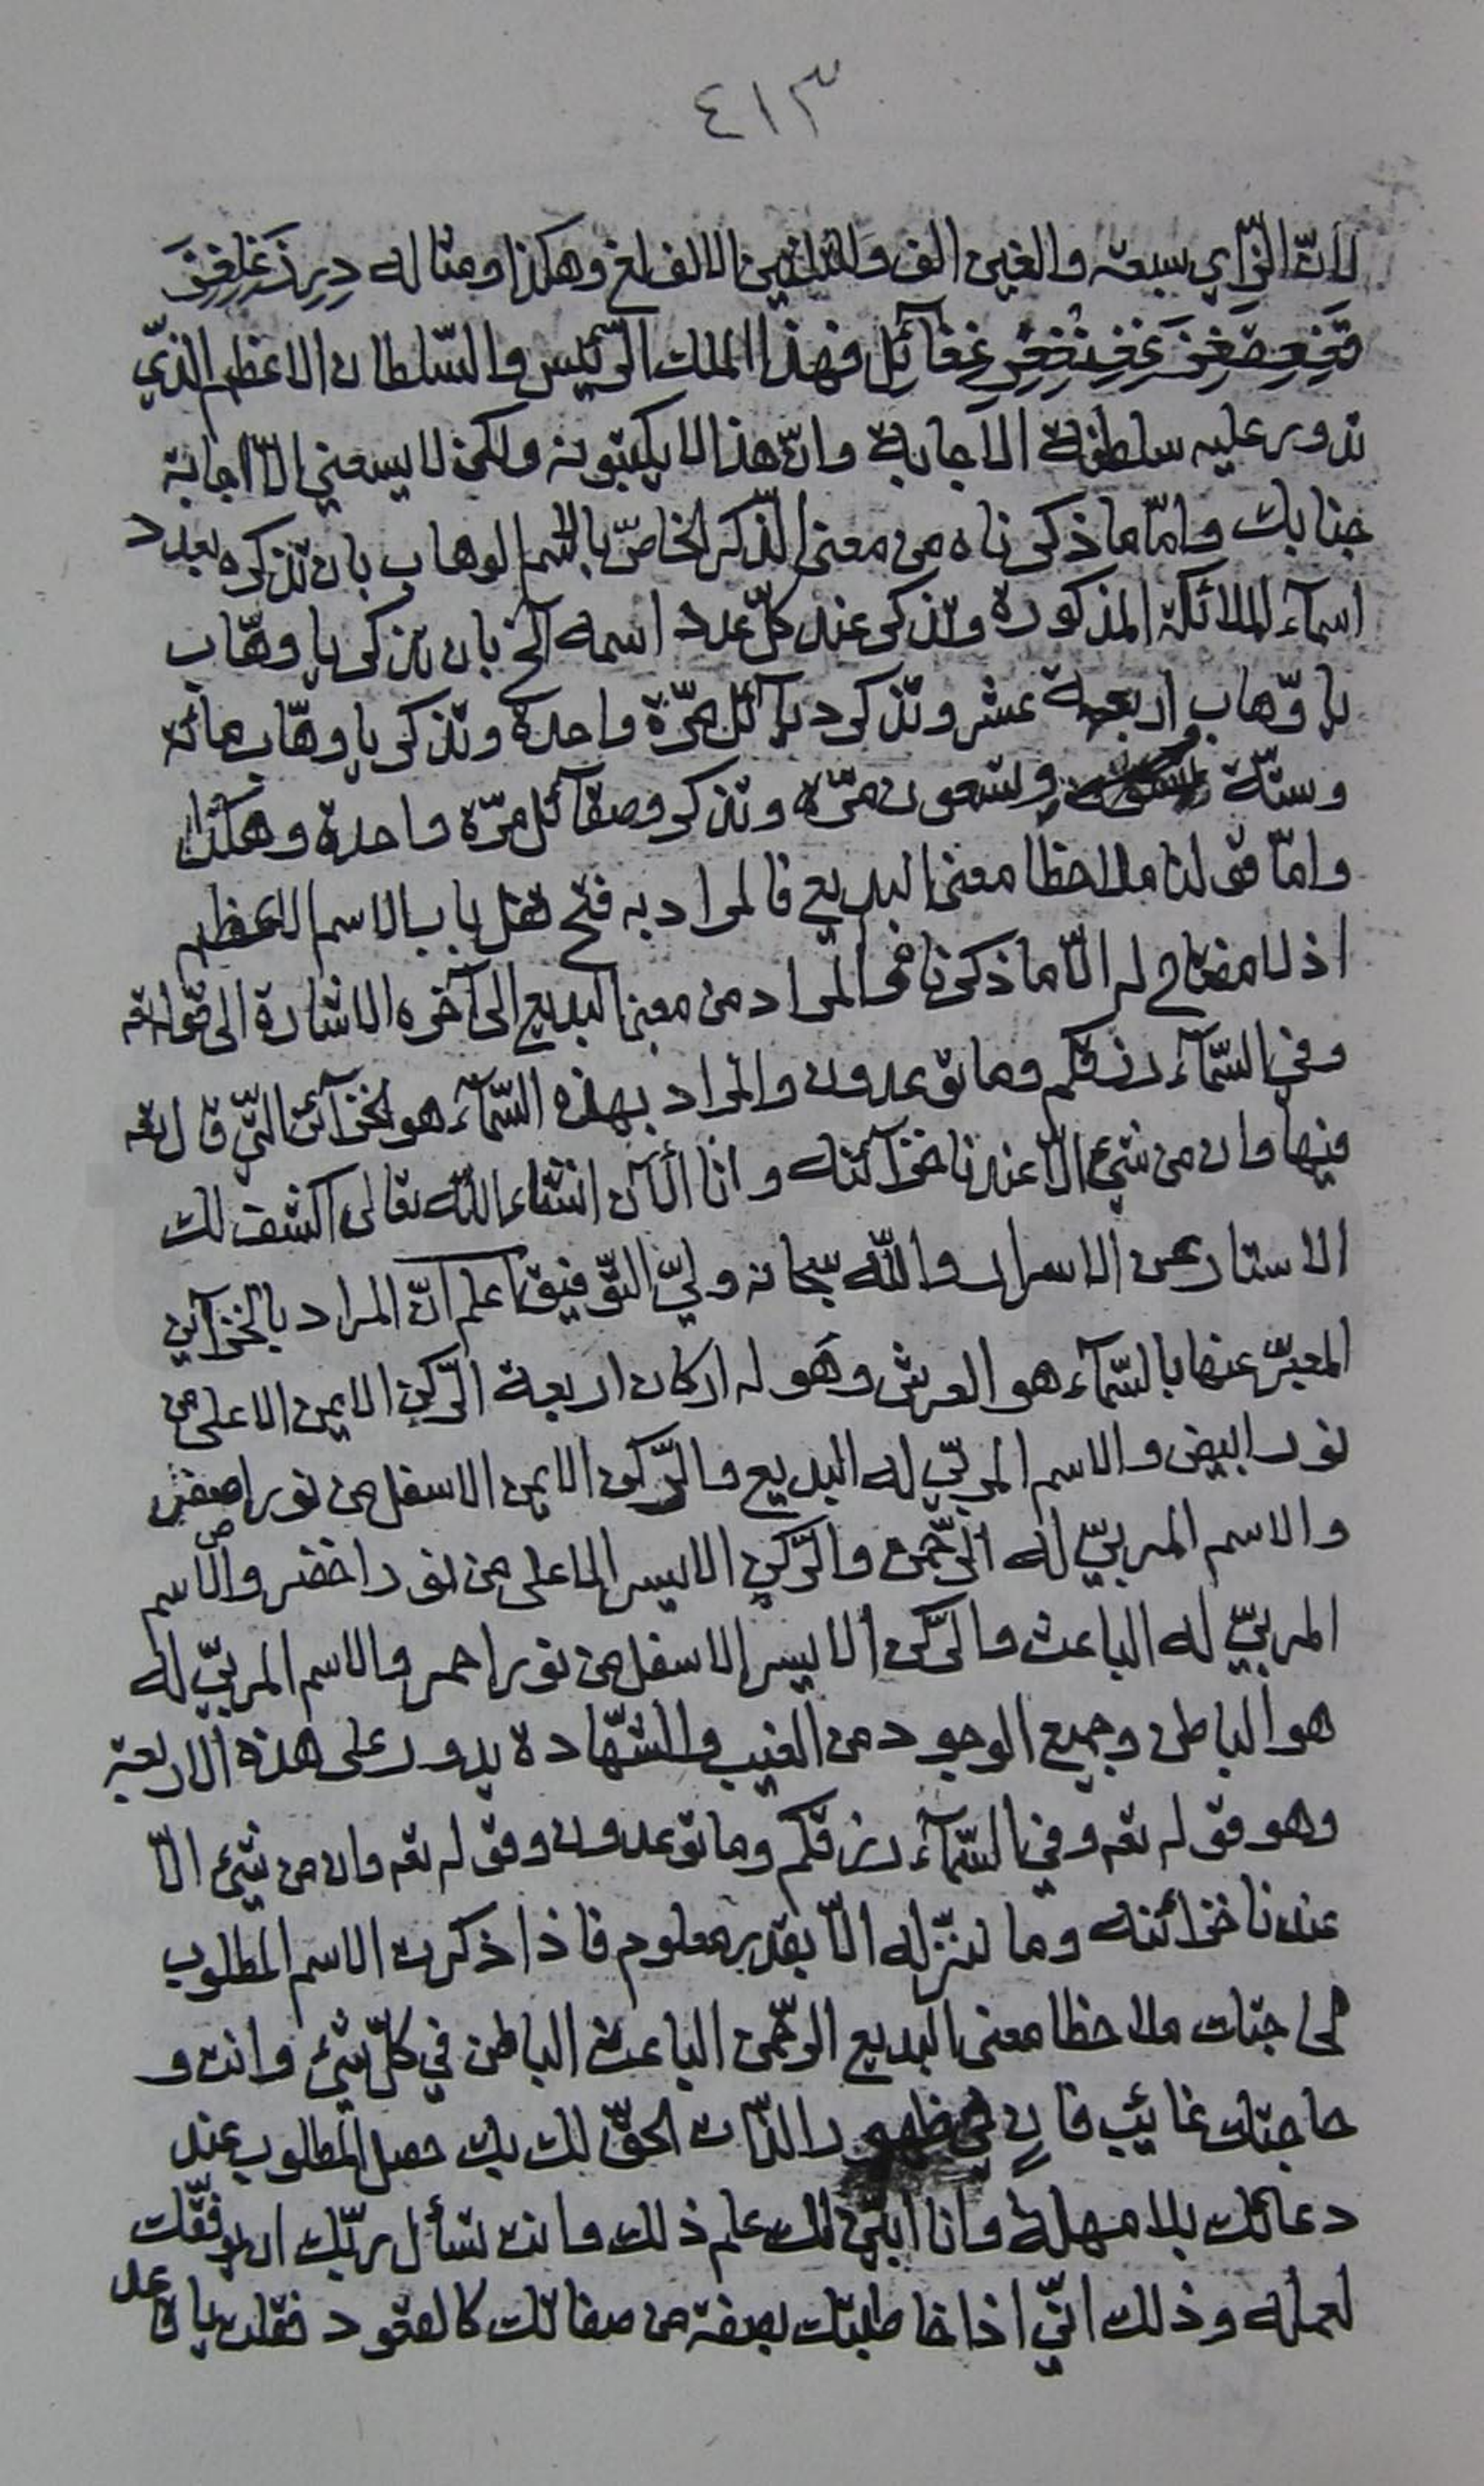 ٤١٣
لانّ الزّاي سبعة والغين الف والثلاثين الالف لغ وهكذا ومثاله
غفائل فهذا الملك الرّئيس والسّلطان الاعظم الذّي
تدور عليه سلطنة الاجابة وانّ هذا لا يكتبونه ولكن لا يسعني الّا اجابة
جنابك وامّا ما ذكرناه من معنى الذّكر الخاصّ بالاسم الوهاب بان تذكره بعدد
اسمآء الملائكة المذكورة وتذكر عند كلّ عدد اسمه الخ بان تذكر يا وهّاب
يا وهّاب اربعة عشر وتذكر ديآئل مرّة واحدة وتذكر يا وهّاب مائة
وستّة وتسعون مرّة وتذكر وصقآئل مرّة واحدة وهكذا
وامّا قولنا ملاحظا معنى البديع فالمراد به فتح قفل باب الاسم الاعظم
اذ لا مفتاح له الّا ما ذكرنا فى المراد من معنى البديع الى آخره الاشارة الى قوله تع
وفي السّمآء رزقكم وما توعدون والمراد بهذه السّمآء هو الخزآئن التّي قال تع
فيها وان من شيء الّا عندنا خزآئنه وانا الآن انشاء اللّه تعالى اكشف لك
الاستار عن الاسرار واللّه سبحانه وليّ التّوفيق اعلم انّ المراد بالخزآين
المعبّر عنها بالسّمآء هو العرش وهو له اركان اربعة الرّكن الايمن الاعلى من
نور ابيض والاسم المربّي له البديع والرّكن الايمن الاسفل من نور اصفر
والاسم المربّي له الرّحمن والرّكن الايسر الاعلى من نور اخضر والاسم
المربّي له الباعث والرّكن الايسر الاسفل من نور احمر والاسم المربّي له
هو الباطن وجميع الوجود من الغيب والشّهادة يدور على هذه الاربعة
وهو قوله تع وفي السّمآء رزقكم وما توعدون وقوله تع وان من شيء الّا
عندنا خزائنه وما ننزّله الّا بقدر معلوم فاذا ذكرت الاسم المطلوب
لحاجتك ملاحظا معنى البديع الرّحمن الباعث الباطن في كلّ شيء وانت و
حاجتك غائب فان في ظهور الذّات الحقّ لك بك حصل المطلوب عند
دعائك بلا مهلة وانا ابيّن لك علم ذلك وانت تسأل ربّك ان يوفّقك
لعمله وذلك انّي اذا خاطبتك بصفة من صفاتك كالقعود فقلت يا قاعد